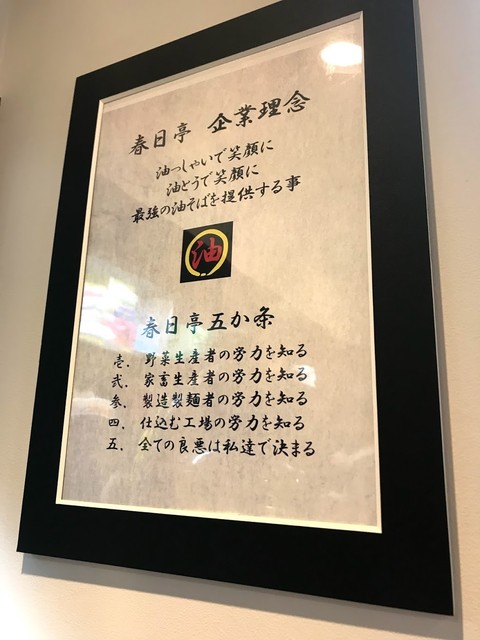 春日亭 企業理念
油っしゃいで笑顔に
油どうで笑顔に
最強の油そばを提供する事
油
春日亭五か条
壱. 野菜生産者の労力を知る
弐. 家畜生産者の労力を知る
参. 製造製麺者の労力を知る
四. 仕込む工場の労力を知る
五. 全ての良悪は私達で決まる